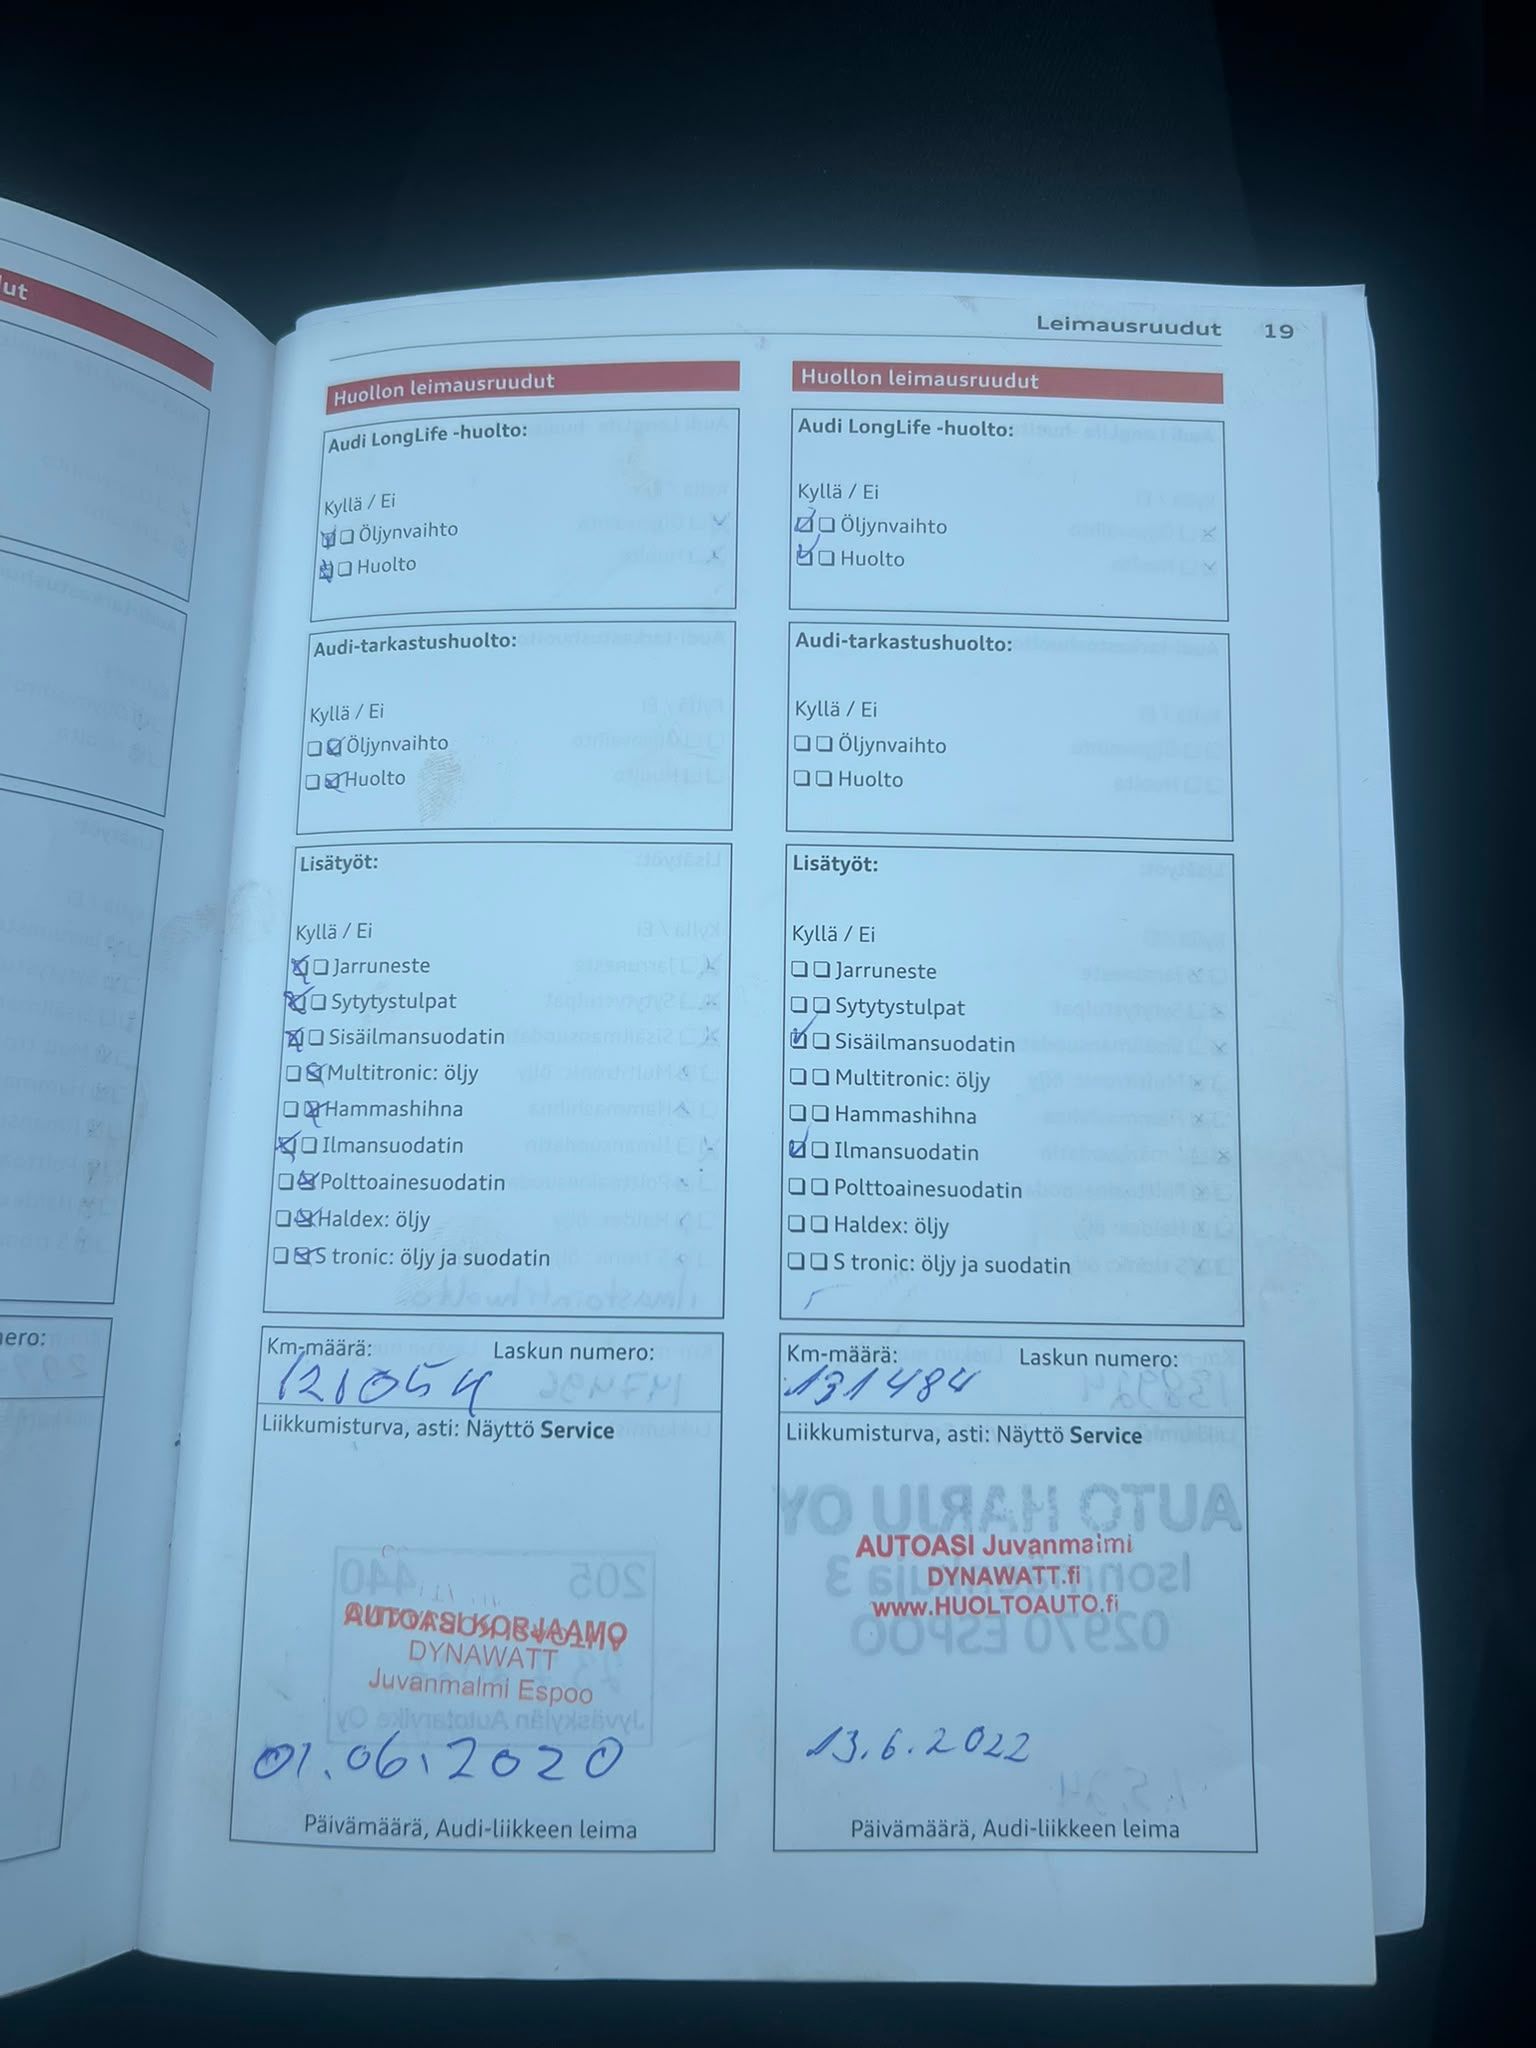 ut
Leimausruudut 19
Huollon leimausruudut
Audi LongLife -huolto:
Kyllä / Ei
Öljynvaihto
Huolto
Audi-tarkastushuolto:
Kyllä / Ei
Öljynvaihto
Huolto
Lisätyöt:
Kyllä / Ei
Jarruneste
Sytytystulpat
Sisäilmansuodatin
Multitronic: öljy
Hammashihna
Ilmansuodatin
Polttoainesuodatin
Haldex: öljy
S tronic: öljy ja suodatin
Km-määrä: Laskun numero:
Liikkumisturva, asti: Näyttö Service
AUTOASI KORJAAMO
DYNAWATT
Juvanmalmi Espoo
01.06.2020
Päivämäärä, Audi-liikkeen leima
Huollon leimausruudut
Audi LongLife -huolto:
Kyllä / Ei
Öljynvaihto
Huolto
Audi-tarkastushuolto:
Kyllä / Ei
Öljynvaihto
Huolto
Lisätyöt:
Kyllä / Ei
Jarruneste
Sytytystulpat
Sisäilmansuodatin
Multitronic: öljy
Hammashihna
Ilmansuodatin
Polttoainesuodatin
Haldex: öljy
S tronic: öljy ja suodatin
Km-määrä: Laskun numero:
131484
Liikkumisturva, asti: Näyttö Service
AUTOASI Juvanmalmi
DYNAWATT.fi
www.HUOLTOAUTO.fi
13.6.2022
Päivämäärä, Audi-liikkeen leima